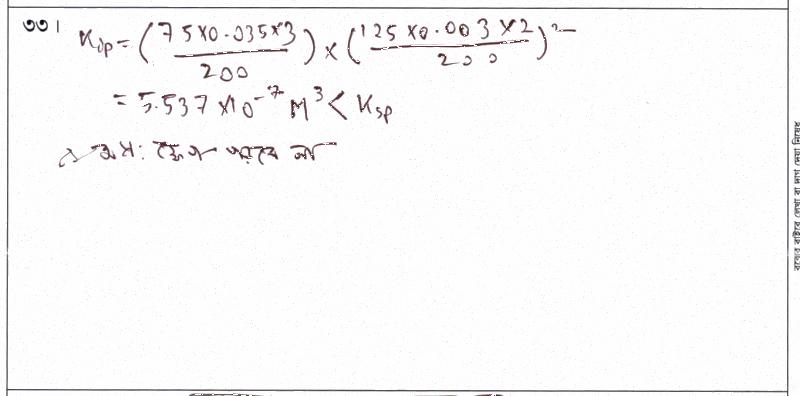 ৩৩। Kip = (75×0.035×3 / 200) × (125×0.003×2 / 200)²
= 5.537×10⁻⁷ M³ < Ksp
অধ: ক্ষেপ পরবে না
বক্সের বাইরে লেখা বা দাগ দেয়া নিষেধ